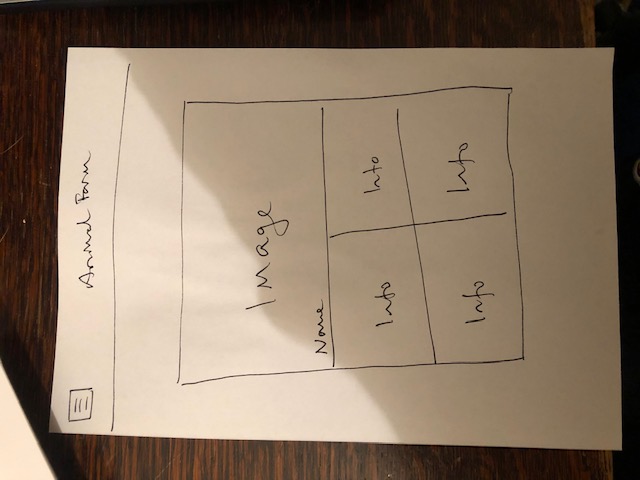 Animal Farm
Image
Name
Info Info
Info Info